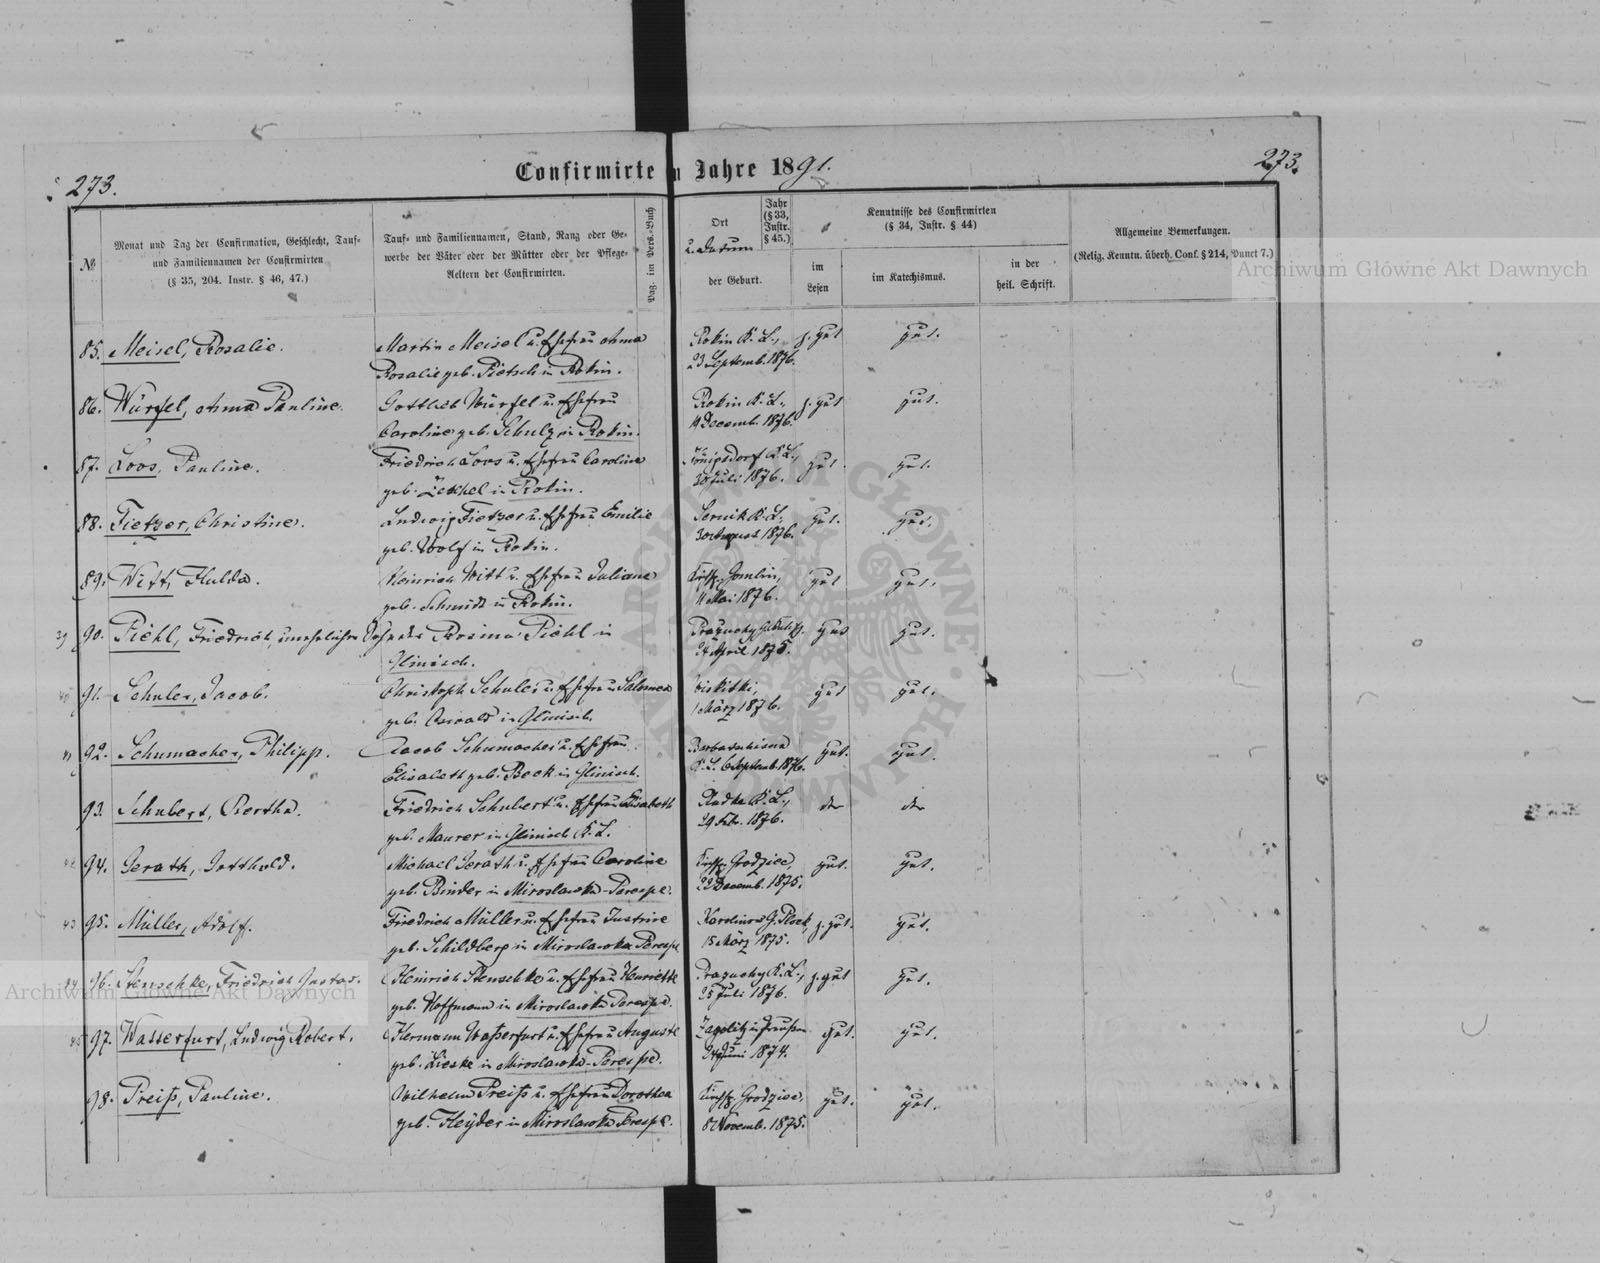 273.
Confirmirte
n Jahre 1891.
273.
№
Monat und Tag der Confirmation, Geschlecht, Tauf-
und Familiennamen der Confirmirten
(§ 35, 204. Instr. § 46, 47.)
Tauf- und Familiennamen, Stand, Rang oder Ge-
werbe der Väter oder der Mütter oder der Pflege-
Aeltern der Confirmirten.
Pag. im Pers.-Buch
Ort
u. Datum
der Geburt.
Jahr
(§ 33,
Instr.
§ 45.)
Kenntnisse des Confirmirten
(§ 34, Instr. § 44)
im
Lesen
im Katechismus.
in der
heil. Schrift.
Allgemeine Bemerkungen.
(Relig. Kenntn. überh. Conf. § 214, Punct 7.)
Archiwum Główne Akt Dawnych
85. Meisel, Rosalie. Martin Meisel u. Ehefrau Anna Rokin K. L., z. gut gut.
Rosalie geb. Pietsch in Rokin. 23 Septemb. 1876.
86. Würfel, Anna Pauline. Gottlieb Würfel u. Ehefrau Rokin K. L., z. gut gut.
Caroline geb. Schulz in Rokin. 14 Decemb. 1876.
87. Loos, Pauline. Friedrich Loos u. Ehefrau Caroline Königsdorf K. L., gut. gut.
geb. in Rokin. 30 Juli 1876.
88. Tietzer, Christine. Ludwig Tietzer u. Ehefrau Emilie Sernik K. L., gut. gut.
geb. Wolf in Rokin. 30 August 1876.
89. Witt, Hulda. Heinrich Witt u. Ehefrau Juliane Kirchsp. Gombin, gut gut.
geb. Schmidt in Rokin. 11 Mai 1876.
39 90. Piehl, Friedrich, unehelicher Sohn der Rosina Piehl in Prazuchy gut gut.
Glinisch. 24 April 1875.
40 91. Schuler, Jacob. Christoph Schuler u. Ehefrau Salomea Wiskitki, gut gut.
geb. Oswald in Glinisch. 1 März 1876.
41 92. Schumacher, Philipp. Jacob Schumacher u. Ehefrau gut. gut.
Elisabeth geb. Beck in Glinisch. K. L. 6 Septemb. 1876.
93. Schubert, Bertha. Friedrich Schubert u. Ehefrau Elisabeth Radka K. L.,
geb. Maurer in Glinisch K. L. 29 Febr. 1876.
42 94. Gerath, Gotthold. Michael Gerath u. Ehefrau Caroline Kirchsp. Grodziec, gut. gut.
geb. Binder in Miroslawka-Perespe. 22 Decemb. 1875.
43 95. Müller, Adolf. Friedrich Müller u. Ehefrau Justine Karolinow G. Plock, z. gut. gut.
geb. Schildberg in Miroslawka Perespe 15 März 1875.
44 96. Stenschke, Friedrich Gustav. Heinrich Stenschke u. Ehefrau Henriette Prazuchy K. L., z. gut gut.
geb. Hoffmann in Miroslawka Perespe. 25 Juli 1876.
Archiwum Główne Akt Dawnych
45 97. Wasserfurt, Ludwig Robert. Hermann Waßerfurt u. Ehefrau Auguste Zagolitz in Preußen gut. gut.
geb. Lieske in Miroslawka-Perespe. 24 Juni 1874.
98. Preiß, Pauline. Wilhelm Preiß u. Ehefrau Dorothea Kirchsp. Grodziec, gut. gut.
geb. Heyder in Miroslawka Perespe. 8 Novemb. 1875.
ARCHIWUM GŁÓWNE AKT DAWNYCH